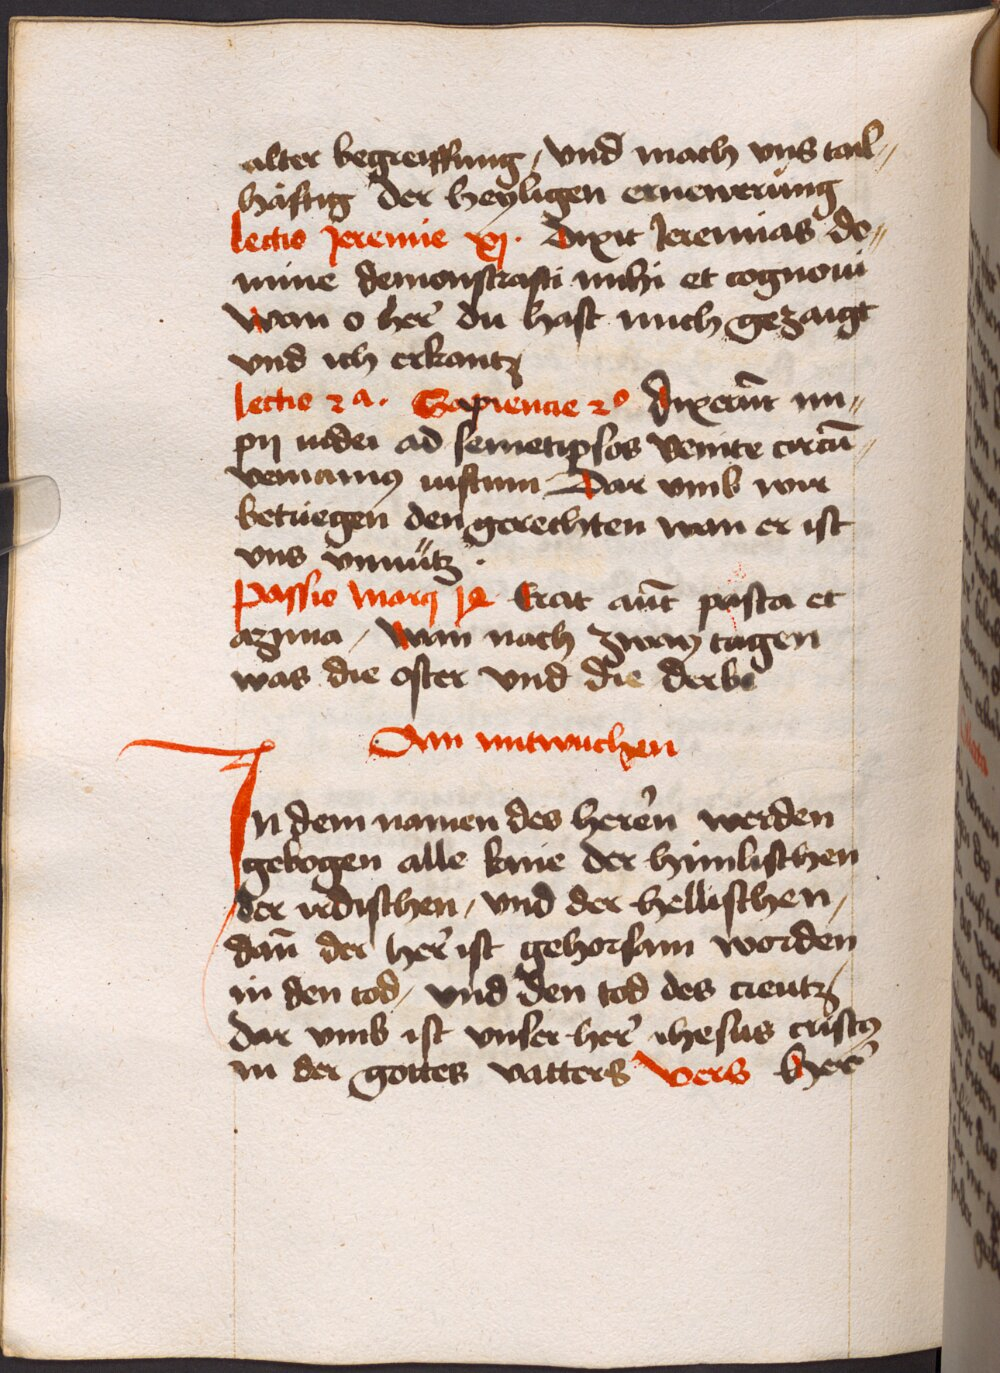 alter begreiffung / vnd mach vns tail⸗
háftig der heyligen ernewerung
lectio Jeremie xj. Dixit Jeremias do⸗
mine demonstrasti michi et cognoui
Wan o her̃ du hast mich gezaigt
vnd ich erkantz
lectio 2ᵃ. Sapiencie 2º Dixerũt im⸗
pij iudei ad semetipsos venite circũ⸗
veniamꝯ iustum Dar vmb wir
betriegen den gerechten wan er ist
vns vnnütz .
Passio Marci Erat aũt pasca et
azima / Wan nach zway tagen
was die oster vnd die derbe
Am mitwuchen
In dem namen des herẽn werden
gebogen alle knie der himlischen
der irdischen / vnd der hellischen /
dañ der her̃ ist gehorsam worden
in den tod / vnd den tod des creutz
Dar vmb ist vnser her̃ ihesus cristꝯ
in der gottes vatters vers Her̃